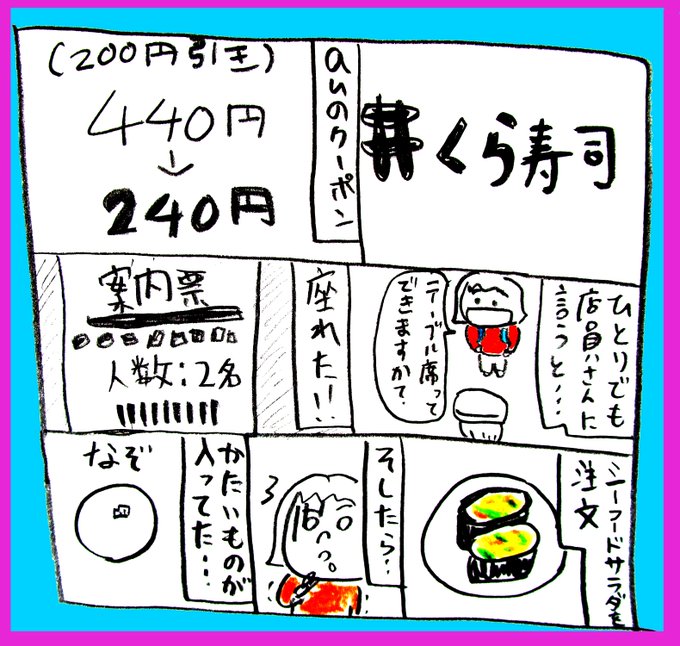 くら寿司
auのクーポン
(200円引き)
440円
↓
240円
ひとりでも
店員さんに
言うと…
テーブル席って
できますか?
座れた!!
案内票
人数:2名
シーフードサラダを
注文
そしたら…
かたいものが
入ってた…
なぞ